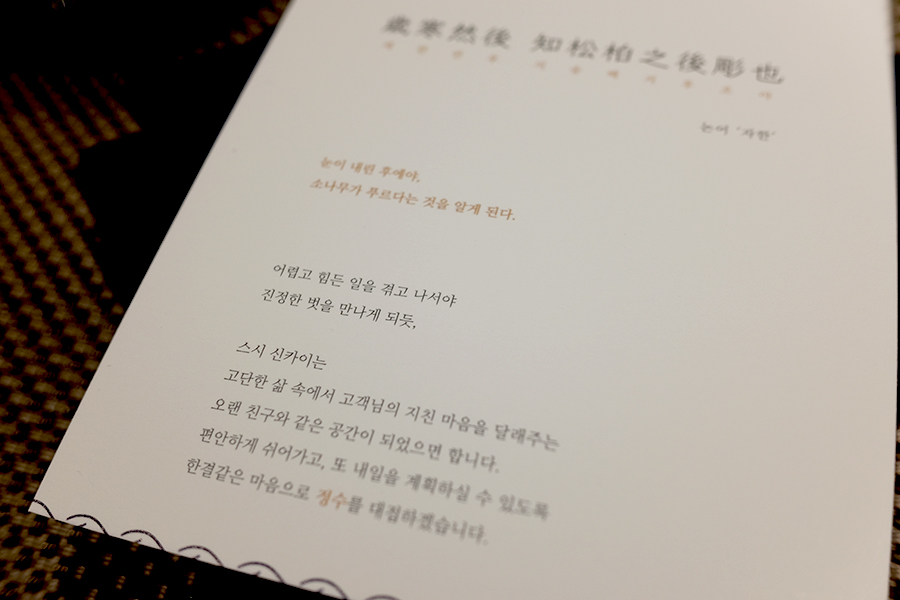 歲寒然後 知松柏之後彫也
세한연후 지송백지후조야
논어 '자한'
눈이 내린 후에야,
소나무가 푸르다는 것을 알게 된다.
어렵고 힘든 일을 겪고 나서야
진정한 벗을 만나게 되듯,
스시 신카이는
고단한 삶 속에서 고객님의 지친 마음을 달래주는
오랜 친구와 같은 공간이 되었으면 합니다.
편안하게 쉬어가고, 또 내일을 계획하실 수 있도록
한결같은 마음으로 정수를 대접하겠습니다.